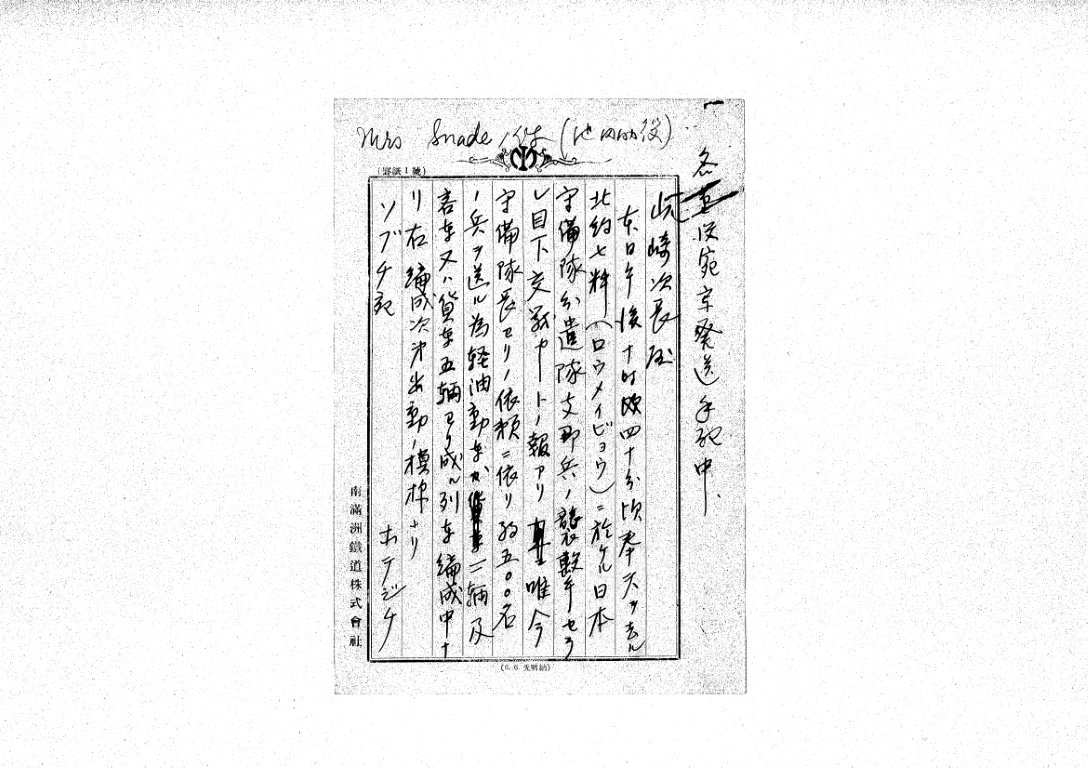 Mrs Snade ノ件 (池内助役)
(甞議1號)
各重役宛京発送手配中
山崎次長殿
本日午後十時四十分頃奉天ヲ去ル
北約七粁(ロウメイビョウ)ニ於ケル日本
守備隊分遣隊支那兵ノ襲撃ヲセラ
レ目下交戦中ートノ報アリ 唯今
守備隊長ヨリノ依頼ニ依リ約五〇〇名
ノ兵ヲ送ル為軽油動車二輌及
客車又ハ貨車五輌ヨリ成ル列車編成中ナ
リ右編成次第出動ノ模様ナリ
ソブチ宛 ホテジチ
南滿洲鐵道株式會社